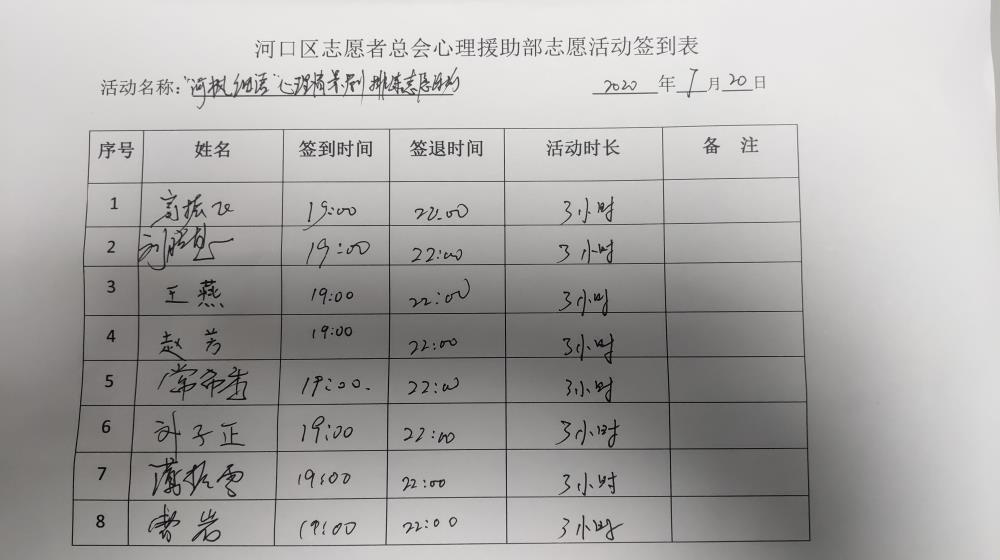 河口区志愿者总会心理援助部志愿活动签到表
活动名称:"河枫细语"心理情景剧排练志愿活动 2020年7月20日
序号 姓名 签到时间 签退时间 活动时长 备 注
1 高振飞 19:00 22:00 3小时
2 刘 19:00 22:00 3小时
3 王燕 19:00 22:00 3小时
4 赵芳 19:00 22:00 3小时
5 常希香 19:00. 22:00 3小时
6 孙子正 19:00 22:00 3小时
7 薄振雪 19:00 22:00 3小时
8 曹岩 19:00 22:00 3小时